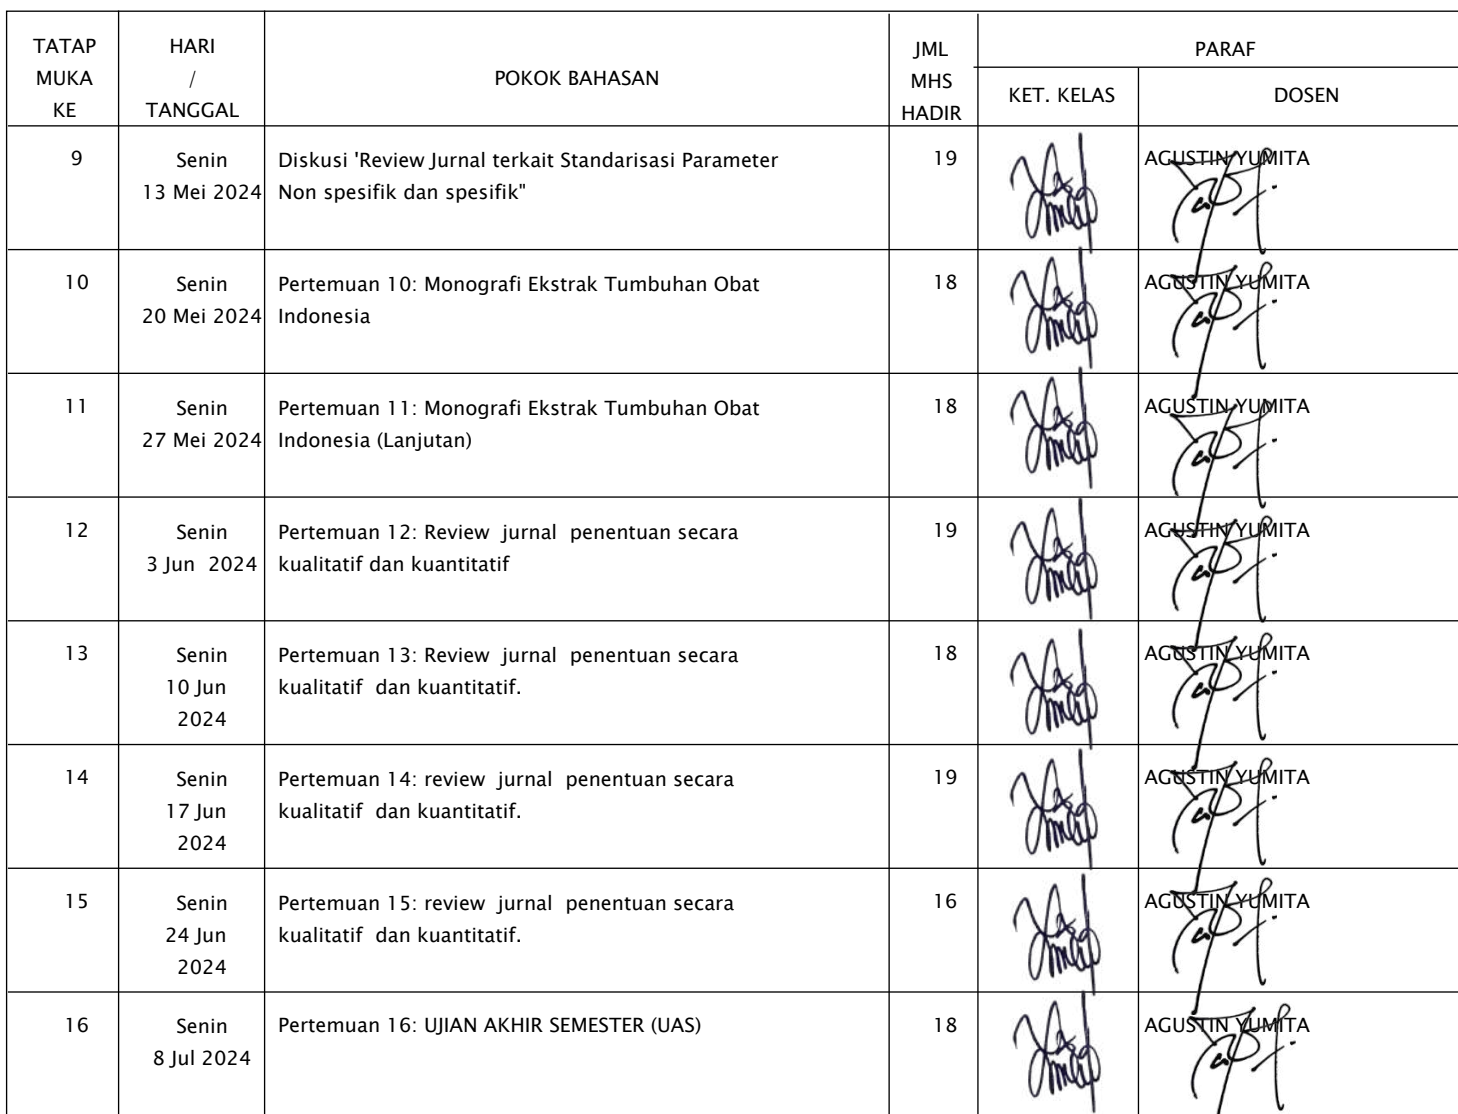 TATAP MUKA KE
HARI / TANGGAL
POKOK BAHASAN
JML MHS HADIR
PARAF
KET. KELAS
DOSEN
9
Senin
13 Mei 2024
Diskusi 'Review Jurnal terkait Standarisasi Parameter
Non spesifik dan spesifik"
19
AGUSTIN YUMITA
10
Senin
20 Mei 2024
Pertemuan 10: Monografi Ekstrak Tumbuhan Obat
Indonesia
18
AGUSTIN YUMITA
11
Senin
27 Mei 2024
Pertemuan 11: Monografi Ekstrak Tumbuhan Obat
Indonesia (Lanjutan)
18
AGUSTIN YUMITA
12
Senin
3 Jun  2024
Pertemuan 12: Review  jurnal  penentuan secara
kualitatif dan kuantitatif
19
AGUSTIN YUMITA
13
Senin
10 Jun
2024
Pertemuan 13: Review  jurnal  penentuan secara
kualitatif  dan kuantitatif.
18
AGUSTIN YUMITA
14
Senin
17 Jun
2024
Pertemuan 14: review  jurnal  penentuan secara
kualitatif  dan kuantitatif.
19
AGUSTIN YUMITA
15
Senin
24 Jun
2024
Pertemuan 15: review  jurnal  penentuan secara
kualitatif  dan kuantitatif.
16
AGUSTIN YUMITA
16
Senin
8 Jul 2024
Pertemuan 16: UJIAN AKHIR SEMESTER (UAS)
18
AGUSTIN YUMITA